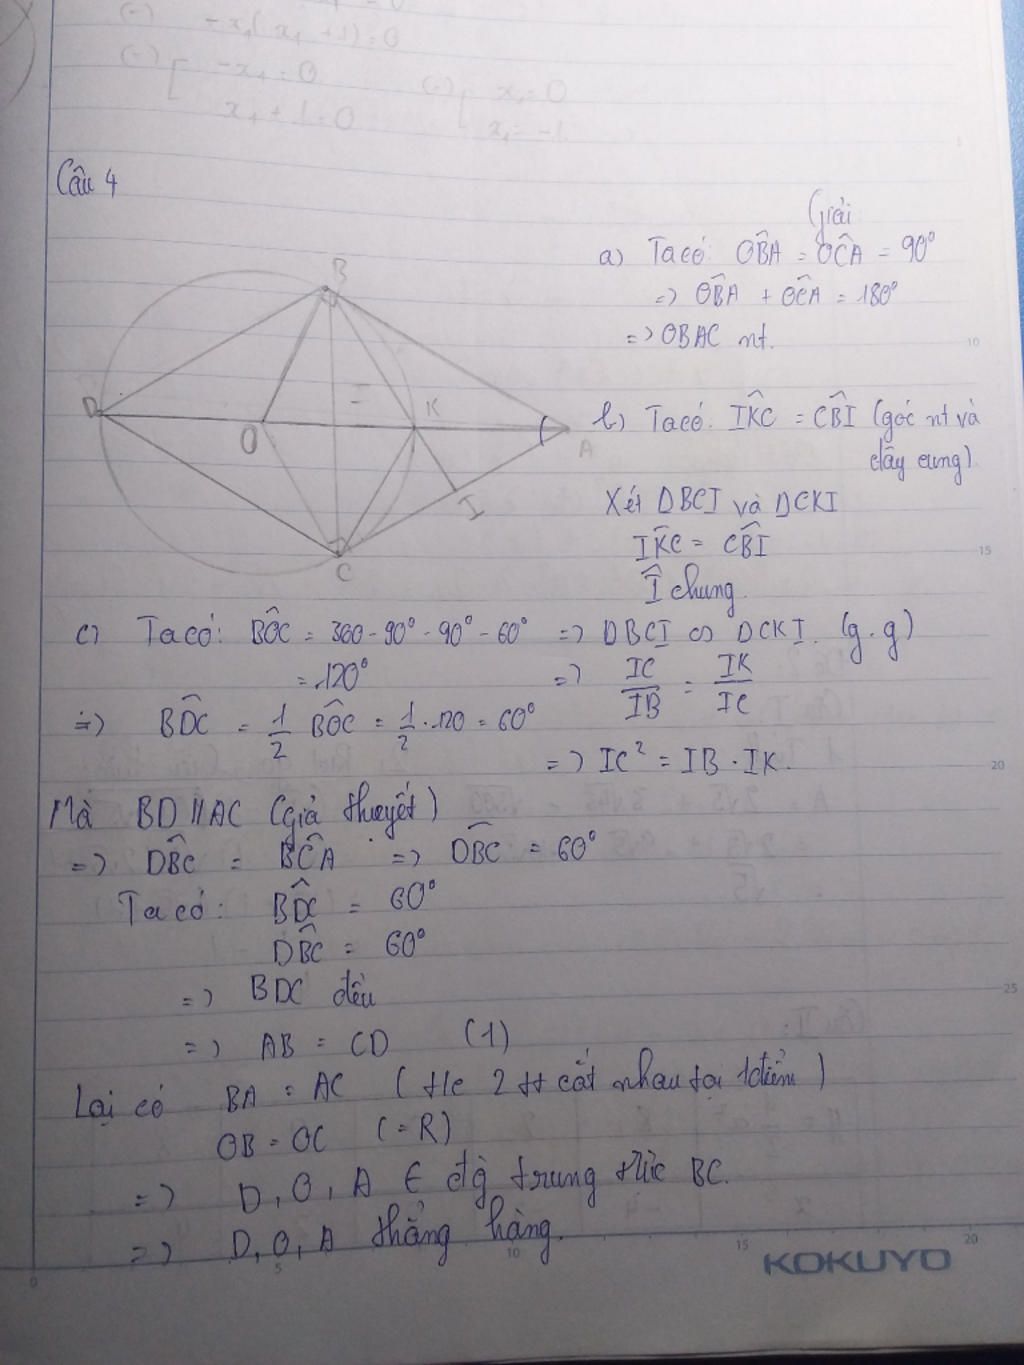 (-) -x₁(x₁ +1)=0
-x₁=0
x₁+1=0
x₁=0
x₁=-1
Câu 4
Giải
a) Ta có: OB̂A = OĈA = 90°
=> OB̂A + OĈA = 180°
=> OBAC nt.
B
D
O
K
A
I
C
b) Ta có: IK̂C = CB̂I (góc nt và
dây cung)
Xét DBCI và DCKI
IK̂C = CB̂I
Î chung.
=> DBCI ∽ DCKI. (g.g)
=> IC/IB = IK/IC
=> IC² = IB.IK.
c) Ta có: BÔC = 360-90°-90°-60°
= 120°
=> BD̂C = 1/2 BÔC = 1/2 . 120 = 60°
Mà BD//AC (giả thuyết)
=> DB̂C = BĈA => DB̂C = 60°
Ta có: BD̂C = 60°
DB̂C = 60°
=> BDC đều
=> AB = CD (1)
Lại có BA = AC (t/c 2 tt cắt nhau tại 1 điểm)
OB = OC (=R)
=> D, O, A ∈ đg trung trực BC.
=> D, O, A thẳng hàng.
10
15
20
25
0
5
10
15
20
KOKUYO